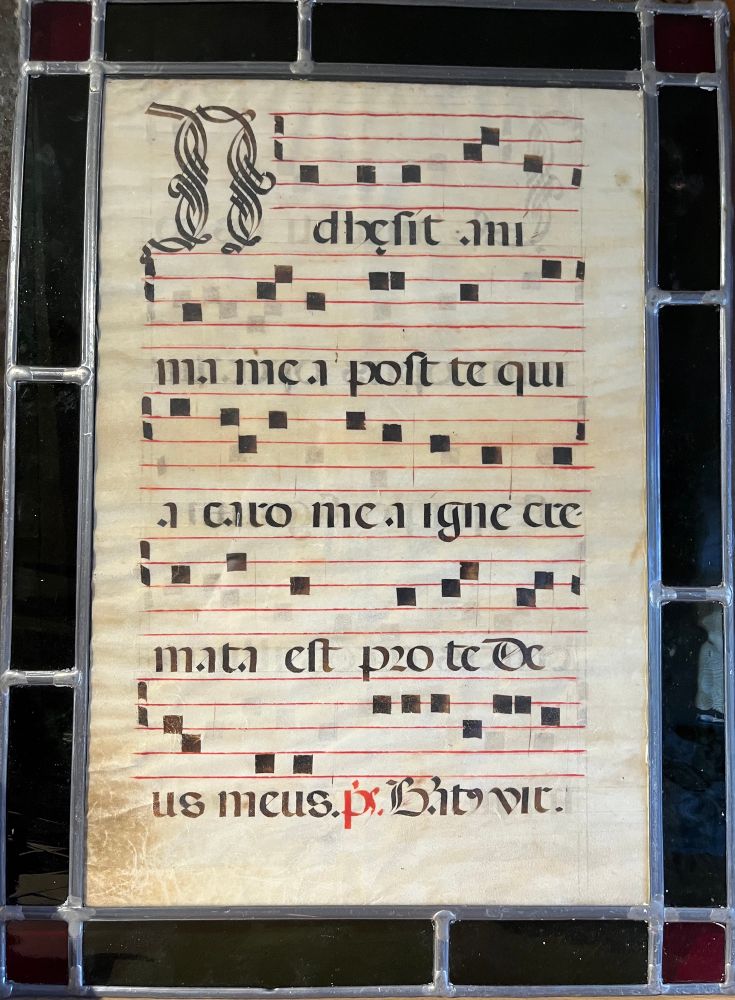 Adhęsit ani
ma mea post te qui
a caro mea igne cre
mata est pro te De
us meus. ps. Bt͛us vir.